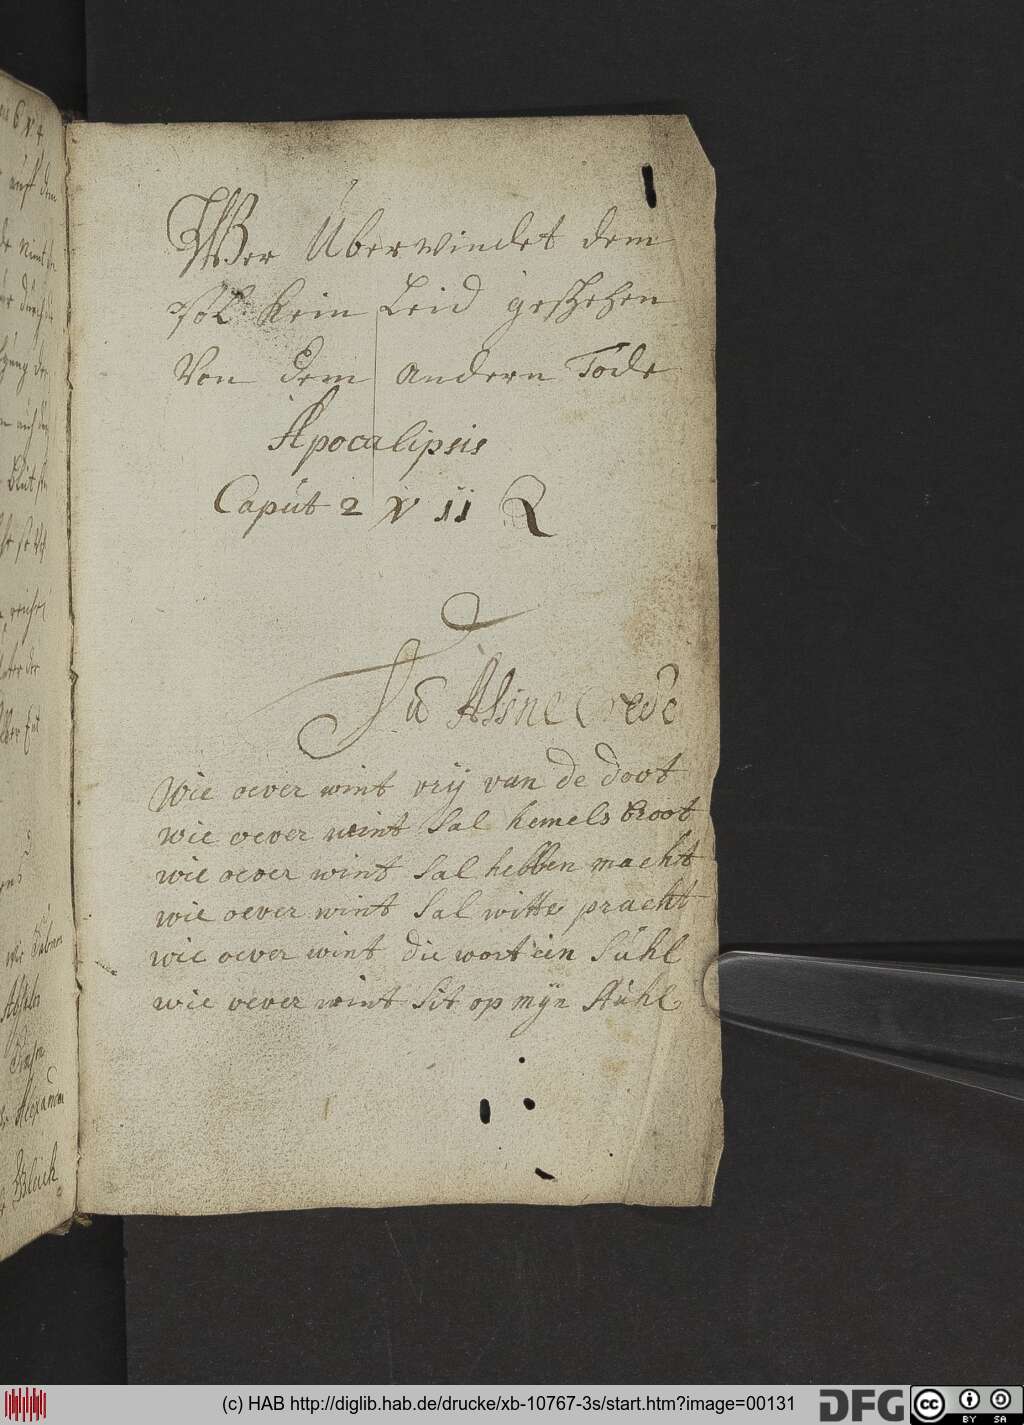 Wer Überwindet dem
sol kein Leid geschehen
Von dem andern Tode
Apocalipsis
Caput 2 v 11
Crede
wie oever wint vrij van de doot
wie oever wint sal hemels broot
wie oever wint sal hebben macht
wie oever wint sal witte pracht
wie oever wint die wort ein Suhl
wie oever wint sit op mijn stuhl
(c) HAB http://diglib.hab.de/drucke/xb-10767-3s/start.htm?image=00131
DFG
cc
BY SA